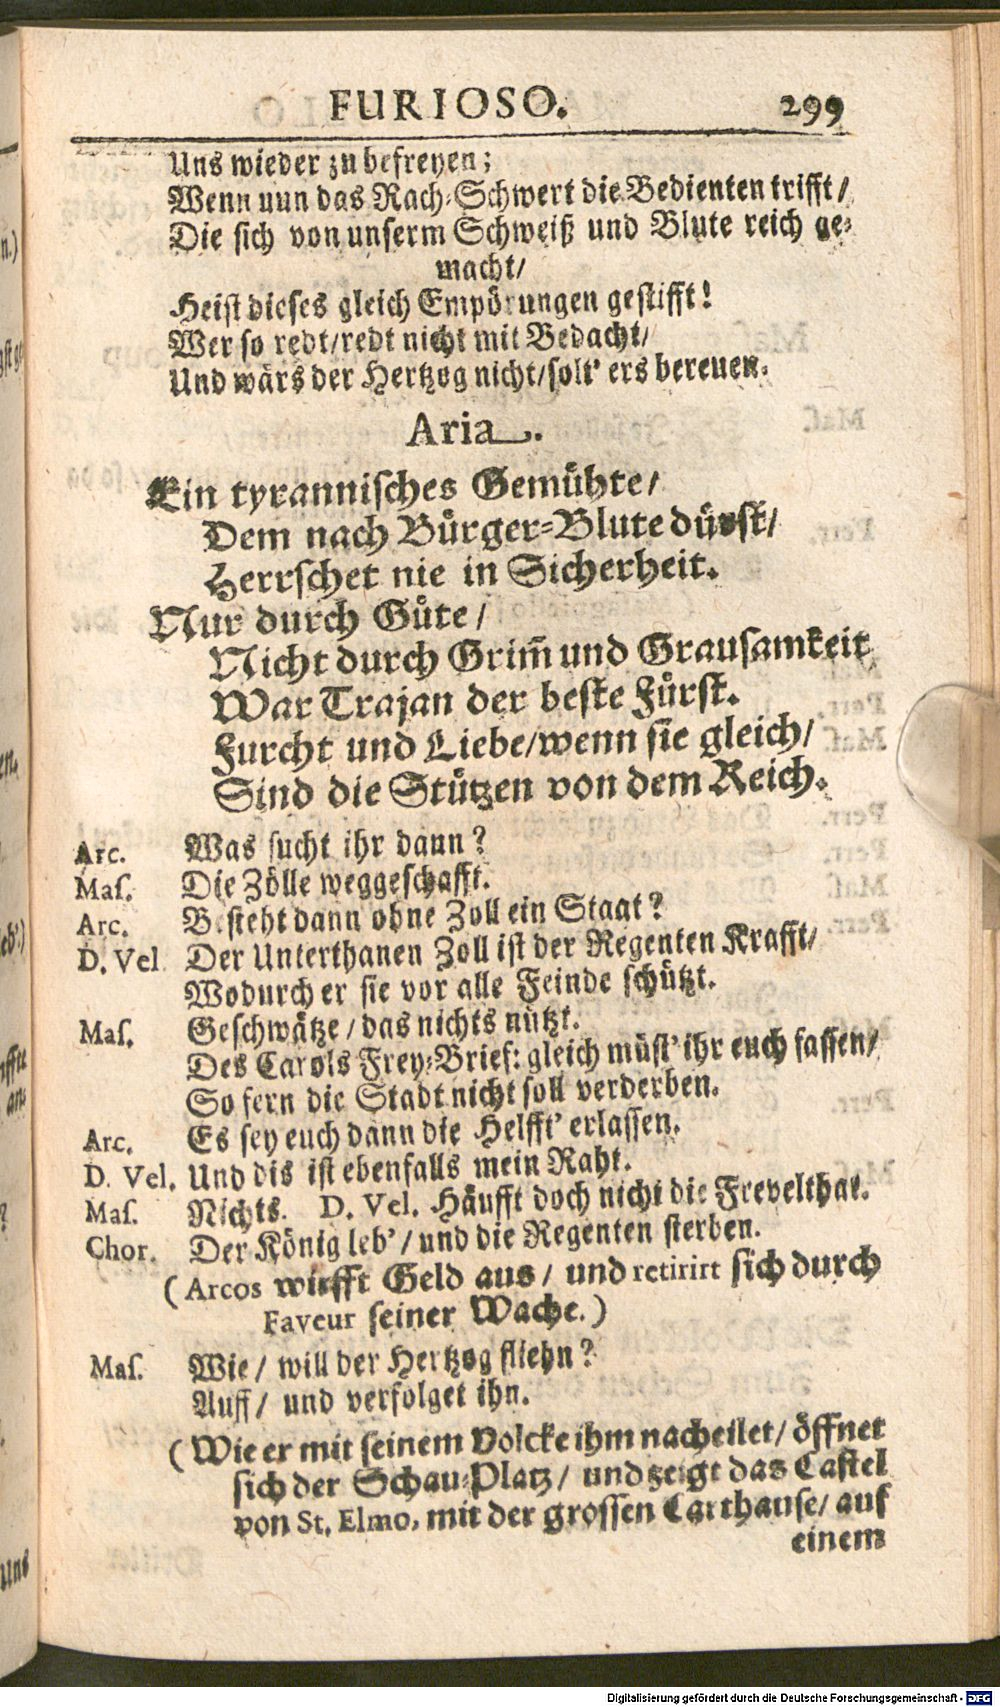 FURIOSO. 299
Uns wieder zu befreyen;
Wenn nun das Rach-Schwert die Bedienten trifft/
Die sich von unserm Schweiß und Blute reich ge-
macht/
Heist dieses gleich Empörungen gestifft!
Wer so redt/redt nicht mit Bedacht/
Und wärs der Hertzog nicht/solt' ers bereuen.
Aria.
Ein tyrannisches Gemühte/
Dem nach Bürger-Blute dürst/
Herrschet nie in Sicherheit.
Nur durch Güte/
Nicht durch Grim̃ und Grausamkeit
War Trajan der beste Fürst.
Furcht und Liebe/wenn sie gleich/
Sind die Stützen von dem Reich.
Arc. Was sucht ihr dann?
Mas. Die Zölle weggeschafft.
Arc. Besteht dann ohne Zoll ein Staat?
D. Vel. Der Unterthanen Zoll ist der Regenten Krafft/
Wodurch er sie vor alle Feinde schützt.
Mas. Geschwätze/das nichts nützt.
Des Carols Frey-Brief: gleich müst' ihr euch fassen/
So fern die Stadt nicht soll verderben.
Arc. Es sey euch dann die Helfft' erlassen.
D. Vel. Und dis ist ebenfalls mein Raht.
Mas. Nichts. D. Vel. Häufft doch nicht die Frevelthat.
Chor. Der König leb'/und die Regenten sterben.
(Arcos wirfft Geld aus/ und retirirt sich durch
Faveur seiner Wache.)
Mas. Wie/ will der Hertzog fliehn?
Auff/ und verfolget ihn.
(Wie er mit seinem Volcke ihm nacheilet/ öffnet
sich der Schau-Platz/ und zeigt das Castel
von St. Elmo, mit der grossen Carthause/ auf
einem
Digitalisierung gefördert durch die Deutsche Forschungsgemeinschaft - DFG